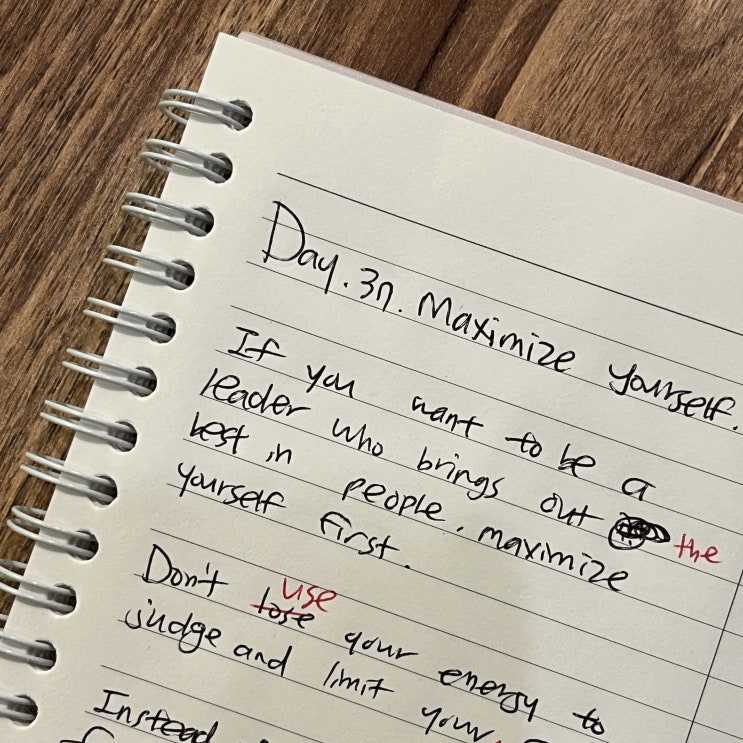 Day. 37. Maximize yourself.
If you want to be a
leader who brings out the
best in people. maximize
yourself first.
Don't lose use your energy to
judge and limit your
Instead